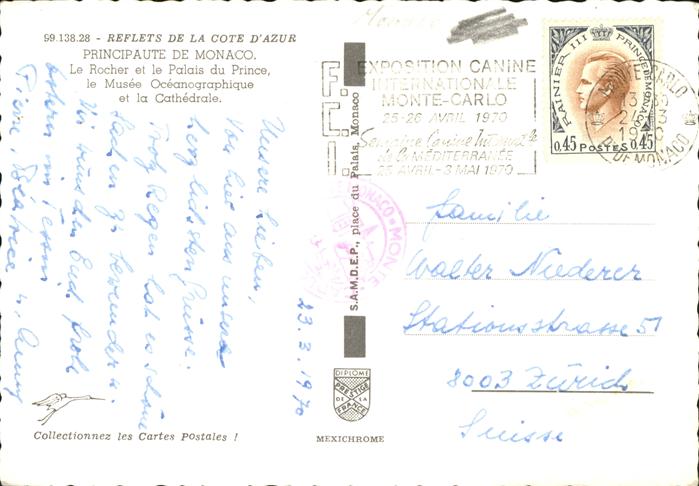 Monaco
99.138.28 - REFLETS DE LA COTE D'AZUR
PRINCIPAUTE DE MONACO.
Le Rocher et le Palais du Prince,
le Musée Océanographique
et la Cathédrale.
23.3.1970
Unsere Lieben,
Von hier aus unsere
herzlichsten Grüsse.
Trotz Regen hat es schöne
Sachen zu bewundern.
Wir wünschen Euch frohe
Ostern im Tessin.
Béatrice
Collectionnez les Cartes Postales !
F.C.I.
EXPOSITION CANINE
INTERNATIONALE
MONTE-CARLO
25-26 AVRIL 1970
Semaine Canine Internat^le
de la MÉDITERRANÉE
25 AVRIL-3 MAI 1970
RAINIER III PRINCE DE MONACO
0,45 POSTES 0,45
1970
DE MONACO
MONACO • MONTE
S.A.M.D.E.P., place du Palais, Monaco
DIPLOME
PRESTIGE
DE LA
FRANCE
MEXICHROME
Familie
Walter Niederer
Stationsstrasse 51
8003 Zürich
Suisse